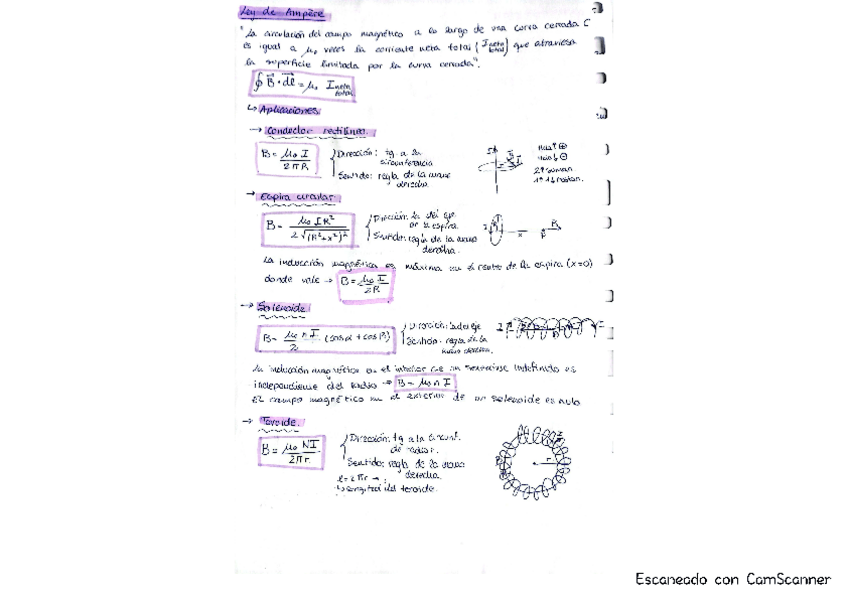 Ley de Ampère
"La circulación del campo magnético a lo largo de una curva cerrada C
es igual a μ₀ veces la corriente neta total (I neta total) que atraviesa
la superficie limitada por la curva cerrada".
∮ B⃗ · dl⃗ = μ₀ I neta total
↳ Aplicaciones
→ Conductor rectilíneo.
B = μ₀ I / 2πR
Dirección: tg a la
circunferencia
Sentido: regla de la mano
derecha
→ Espira circular
B = μ₀ I R² / 2√(R²+x²)³
Dirección: la del eje
de la espira.
Sentido: regla de la mano
derecha.
La inducción magnética es máxima en el centro de la espira (x=0)
donde vale → B = μ₀ I / 2R
→ Solenoide
B = μ₀ n I / 2 (cosα + cosβ)
Dirección: la del eje
Sentido: regla de la
mano derecha.
La inducción magnética en el interior de un solenoide indefinido es
independiente del radio → B = μ₀ n I
El campo magnético en el exterior de un solenoide es nulo
→ Toroide.
B = μ₀ NI / 2πr
Dirección: tg a la circunf.
de radio r.
Sentido: regla de la mano
derecha.
l = 2πr →
↳ longitud del toroide.
Escaneado con CamScanner